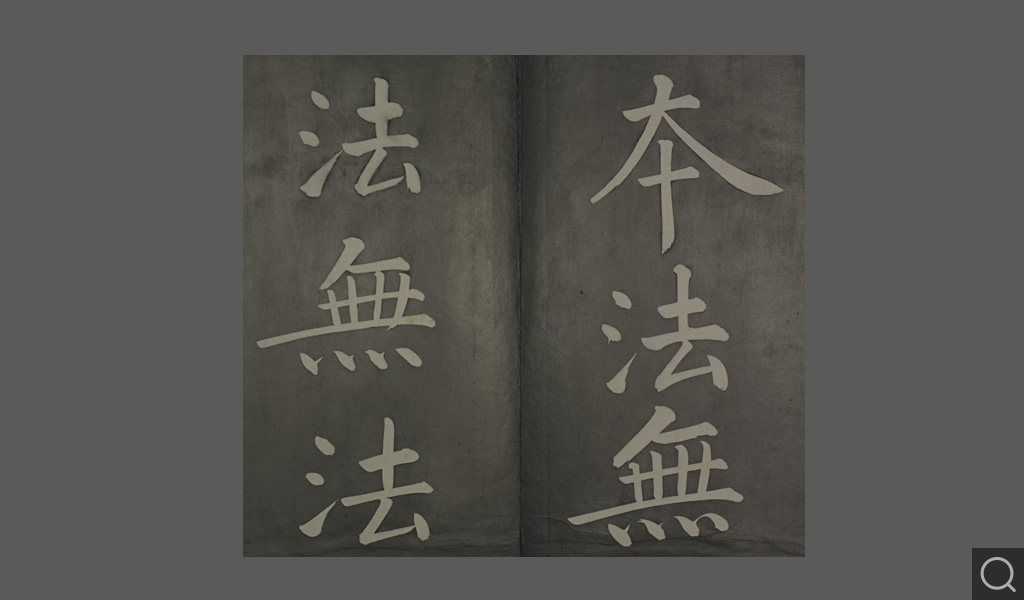 本法無
法無法